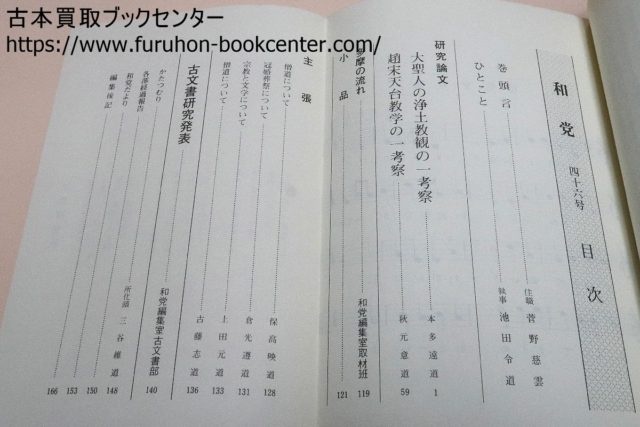 古本買取ブックセンター
https://www.furuhon-bookcenter.com/
和党 四十六号 目次
巻頭言 住職 菅野慈雲
ひとこと 執事 池田令道
研究論文
大聖人の浄土教観の一考察 本多遠道 1
趙末天台教学の一考察 秋元意道 59
多摩の流れ 和党編集室取材班 119
小品 121
主張
僧道について 保高暎道 128
冠婚葬祭について 倉光遵道 131
宗教と文学について 上田元道 133
僧道について 古藤志道 136
古文書研究発表 和党編集室古文書部 140
かたつむり 所化頭 三谷維道 148
各部経過報告 150
和党だより 153
編集後記 166